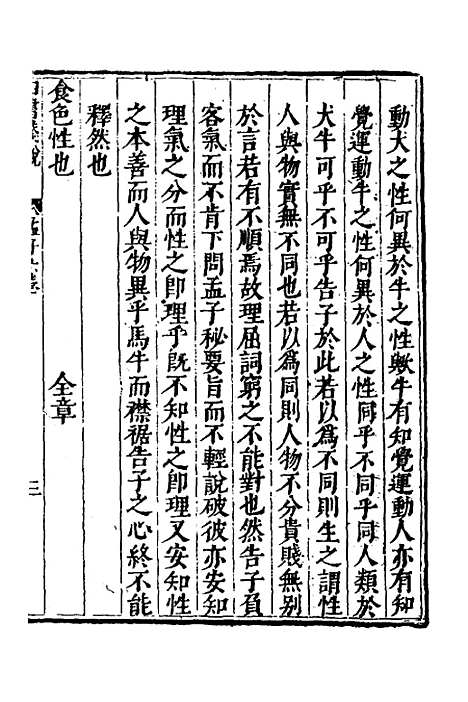 動犬之性何異於牛之性歟牛有知覺運動人亦有知
覺運動牛之性何異於人之性同乎不同乎同人類於
犬牛可乎不可乎告子於此若以爲不同則生之謂性
人與物實無不同也若以爲同則人物不分貴賤無别
於言若有不順焉故理屈詞窮之不能對也然告子負
客氣而不肯下問孟子秘要旨而不輕說破彼亦安知
理氣之分而性之即理乎旣不知性之即理又安知性
之本善而人與物異乎馬牛而襟裾告子之心終不能
釋然也
食色性也 全章
三